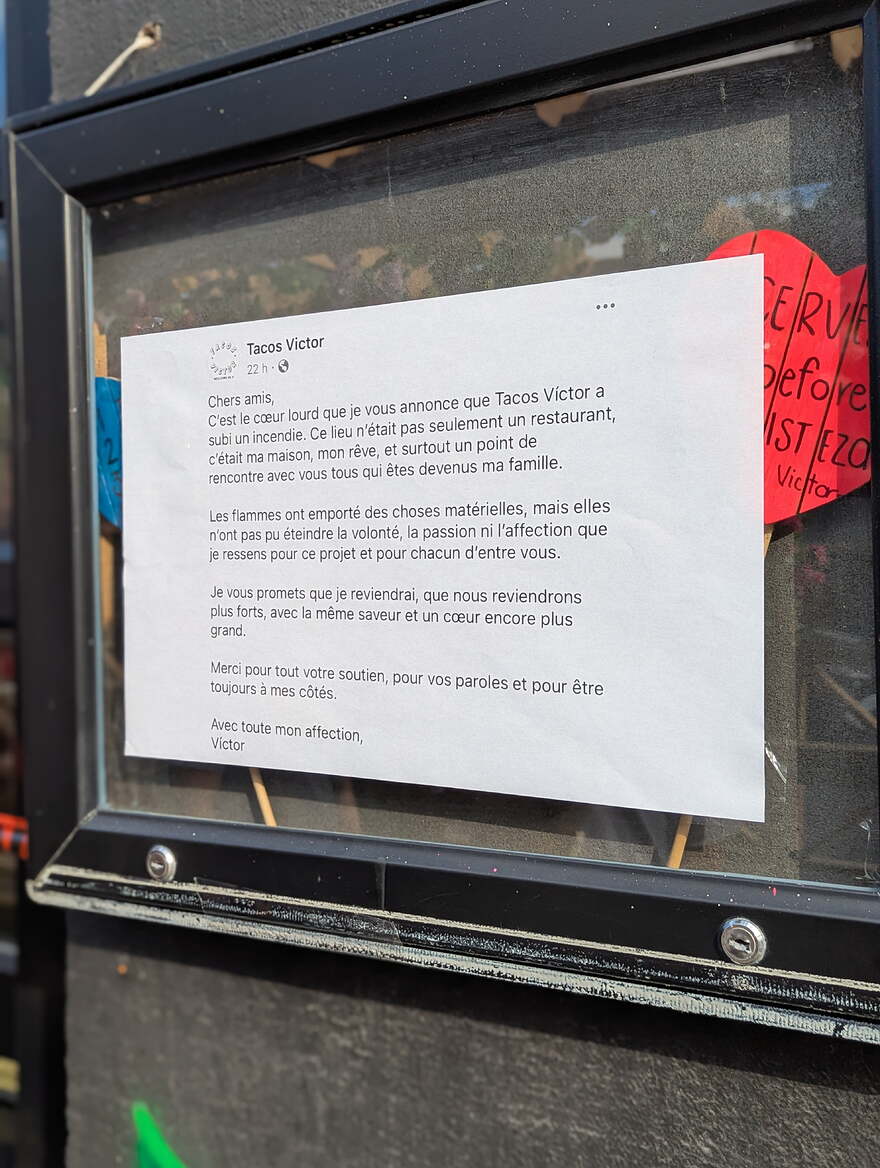 Tacos Victor
22 h ·
Chers amis,
C'est le cœur lourd que je vous annonce que Tacos Víctor a
subi un incendie. Ce lieu n'était pas seulement un restaurant,
c'était ma maison, mon rêve, et surtout un point de
rencontre avec vous tous qui êtes devenus ma famille.
Les flammes ont emporté des choses matérielles, mais elles
n'ont pas pu éteindre la volonté, la passion ni l'affection que
je ressens pour ce projet et pour chacun d'entre vous.
Je vous promets que je reviendrai, que nous reviendrons
plus forts, avec la même saveur et un cœur encore plus
grand.
Merci pour tout votre soutien, pour vos paroles et pour être
toujours à mes côtés.
Avec toute mon affection,
Víctor
before
Victor